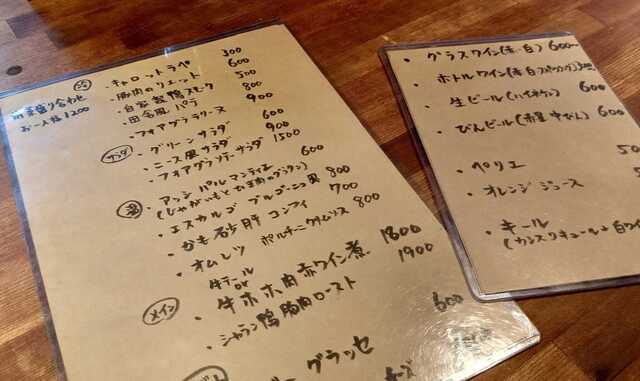 前菜盛り合わせ
お一人様1200
・キャロットラペ 300
・豚肉のリエット 600
・自家製鴨スモーク 500
・田舎風パテ 800
・フォアグラテリーヌ 900
サラダ
・グリーンサラダ 600
・ニース風サラダ 900
・フォアグラソテーサラダ 1500
温
・アッシ パルマンティエ 600
(じゃがいもとひき肉のグラタン)
・エスカルゴ ブルゴーニュ風 800
・かも砂肝 コンフィ 700
・オムレツ ポルチーニクリームソース 800
メイン
牛テール
or
・牛ホホ肉赤ワイン煮 1800
・シャラン鴨胸肉ロースト 1900
グラッセ 600
チーズ
・グラスワイン(赤・白) 600〜
・ボトルワイン(赤 白 スパークリング)
・生ビール(ハイネケン) 600
・びんビール(赤星 中びん) 600
・ペリエ 50
・オレンジ ジュース 5
・キール
(カシスリキュール+白ワイ